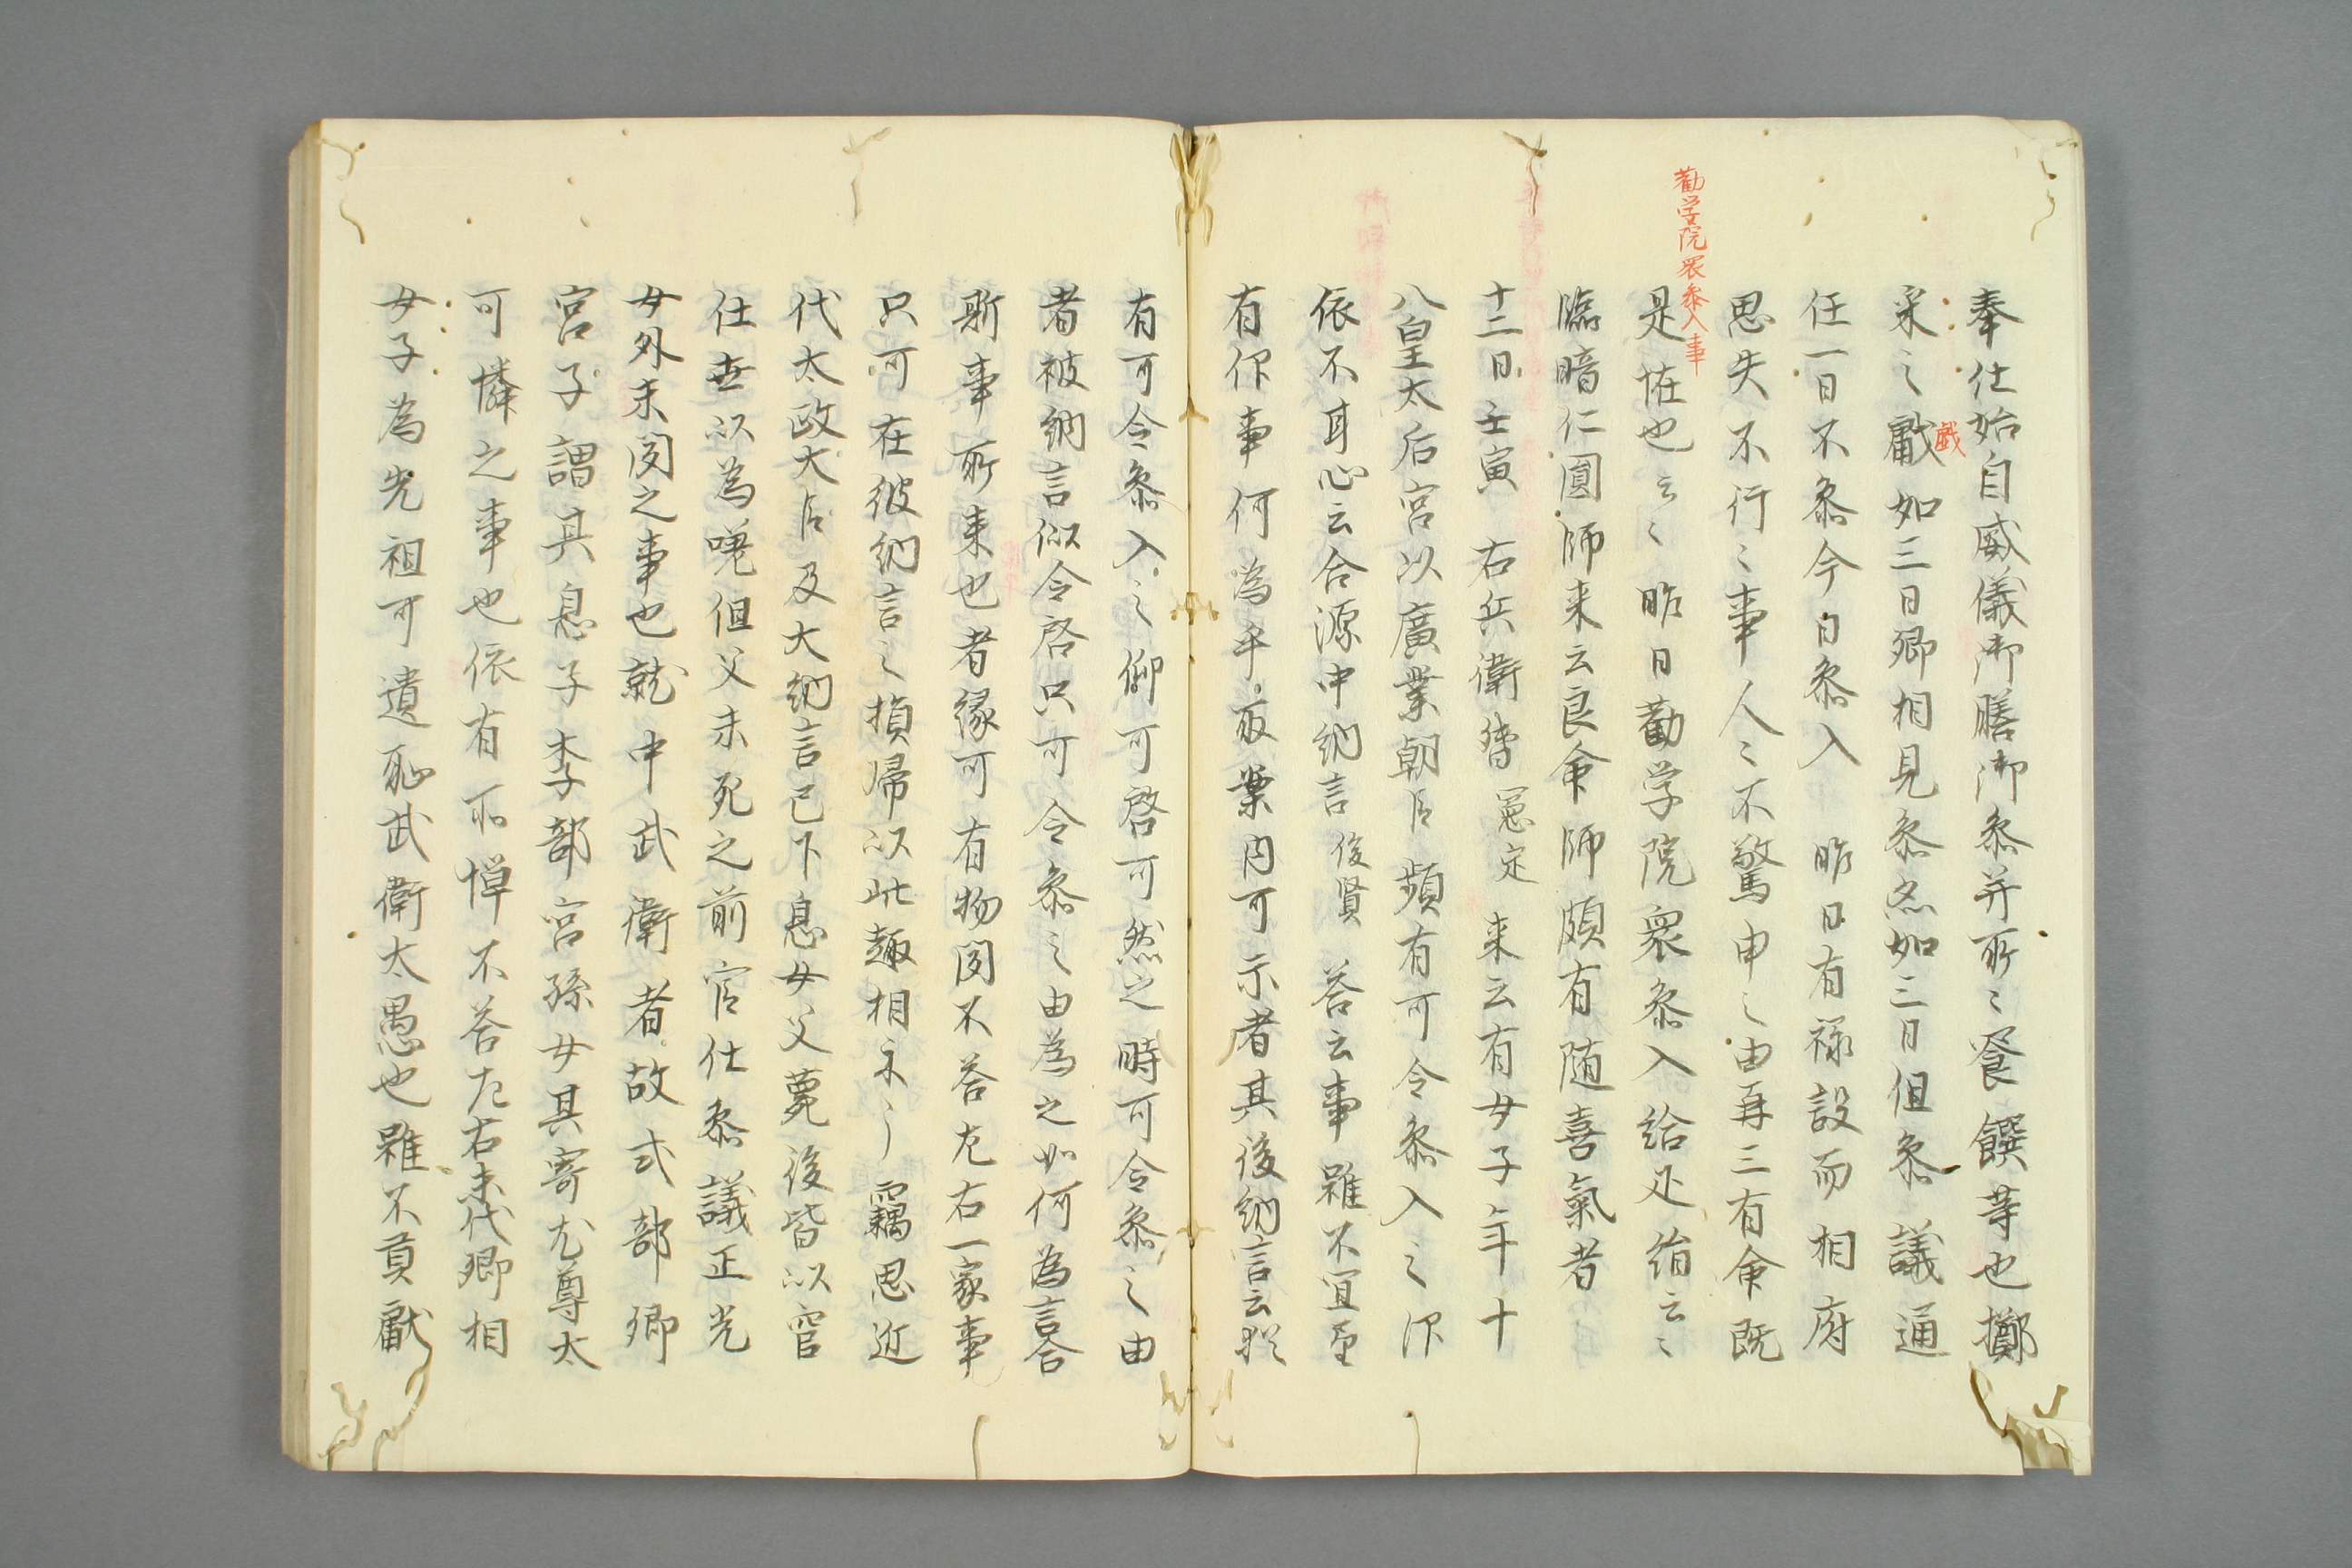 勧学院衆参入事
奉仕始自威儀御膳御参并所〻饗饌等也擲
采之戯如三日卿相見参忽如三日但参議通
戯
任一日不参今日参入 昨日有禄設而相府
思失不行〻事人〻不驚申〻由再三有命既
是恠也云〻 昨日勧学院衆参入給疋絹云〻
臨暗仁圓師来云良命師師頗有随喜氣者
十二日壬寅 右兵衛督憲定来云有女子年十
八皇太后宮以廣業朝臣頻有可令参入之仰
依不甘心云合源中納言俊賢 答云事雖不宜至
有仰事何為乎廣業内可示者其後納言云猶
有可令参入之仰可啓可然之時可令参之由
者被納言似令啓只可令参之由為之如何為言合
斯事所来也者縁可有物聞不答左右一家事
只可在彼納言之損帰以此趣相示了竊思近
代太政大臣及大納言已下息女父薨後皆以宦
仕世以為嗟但父未死之前宦仕参議正光
女外未聞之事也就中武衛者故式部卿
宮子謂其息子李部宮孫女其寄尤尊太
可憐之事也依有所憚不答左右末代卿相
女子為先祖可遺恥武衛太愚也雖不貢獻